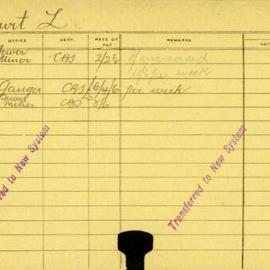 urt L
OFFICE DEPT. RATE OF PAY REMARKS DAT
Sewer
Miner CAS 2/2½ Increased
per week
Ganger CAS £6/4/6 per week
Sewer
Miner CAS
red to New System
Transferred to New System